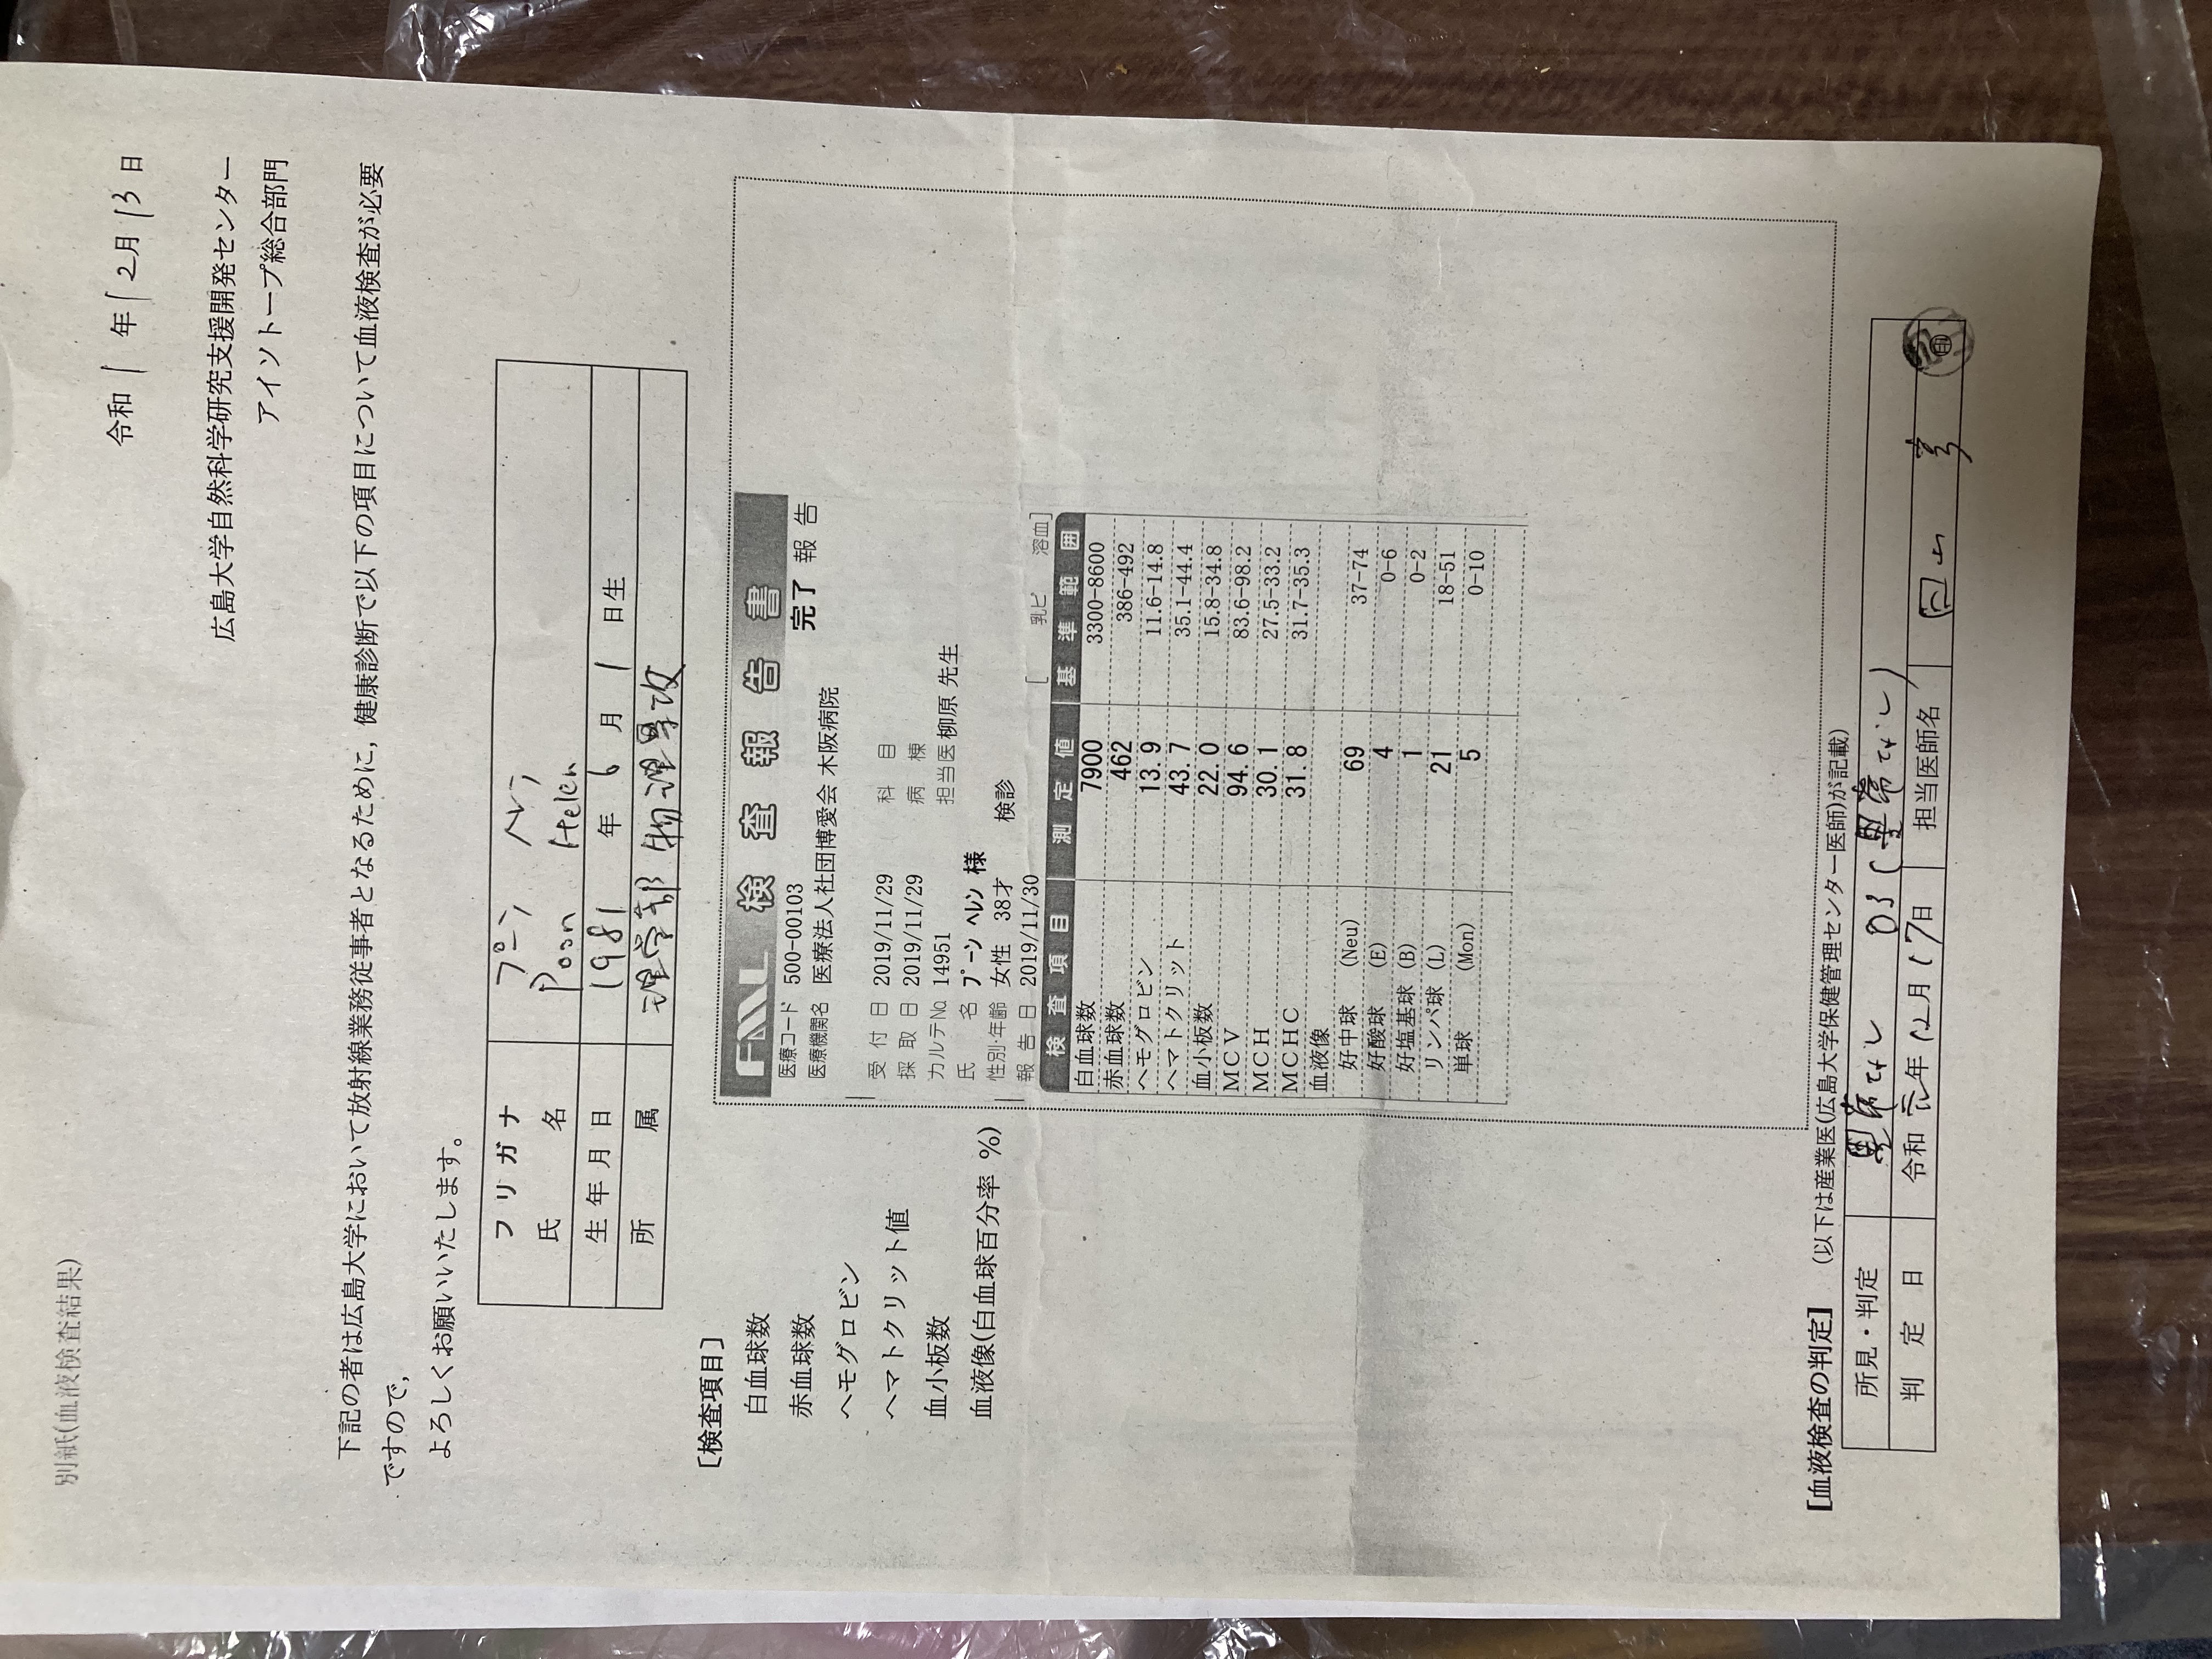 別紙(血液検査結果)
令和 1 年 12月 13 日
広島大学自然科学研究支援開発センター
アイソトープ総合部門
下記の者は広島大学において放射線業務従事者となるために，健康診断で以下の項目について血液検査が必要
ですのので，
よろしくお願いいたします。
フリガナ プーン ヘレン
氏 名 Poon Helen
生年月日 1981 年 6 月 1 日生
所 属 理学部 物理
[検査項目]
白血球数
赤血球数
ヘモグロビン
ヘマトクリット値
血小板数
血液像(白血球百分率 %)
FML 検査報告書
医療コード 500-00103 完了 報告
医療機関名 医療法人社団博愛会 木阪病院
受付日 2019/11/29 科目
採取日 2019/11/29 病棟
カルテNo 14951 担当医 柳原 先生
氏 名 プーン ヘレン 様
性別・年齢 女性 38才 検診
報告日 2019/11/30 [ 乳ビ 溶血]
検査項目 測定値 基準範囲
白血球数 7900 3300-8600
赤血球数 462 386-492
ヘモグロビン 13.9 11.6-14.8
ヘマトクリット 43.7 35.1-44.4
血小板数 22.0 15.8-34.8
MCV 94.6 83.6-98.2
MCH 30.1 27.5-33.2
MCHC 31.8 31.7-35.3
血液像
好中球 (Neu) 69 37-74
好酸球 (E) 4 0-6
好塩基球 (B) 1 0-2
リンパ球 (L) 21 18-51
単球 (Mon) 5 0-10
[血液検査の判定] (以下は産業医(広島大学保健管理センター医師)が記載)
所見・判定 異常なし 03(異常なし)
判定日 令和 元年 12月 17日 担当医師名 印